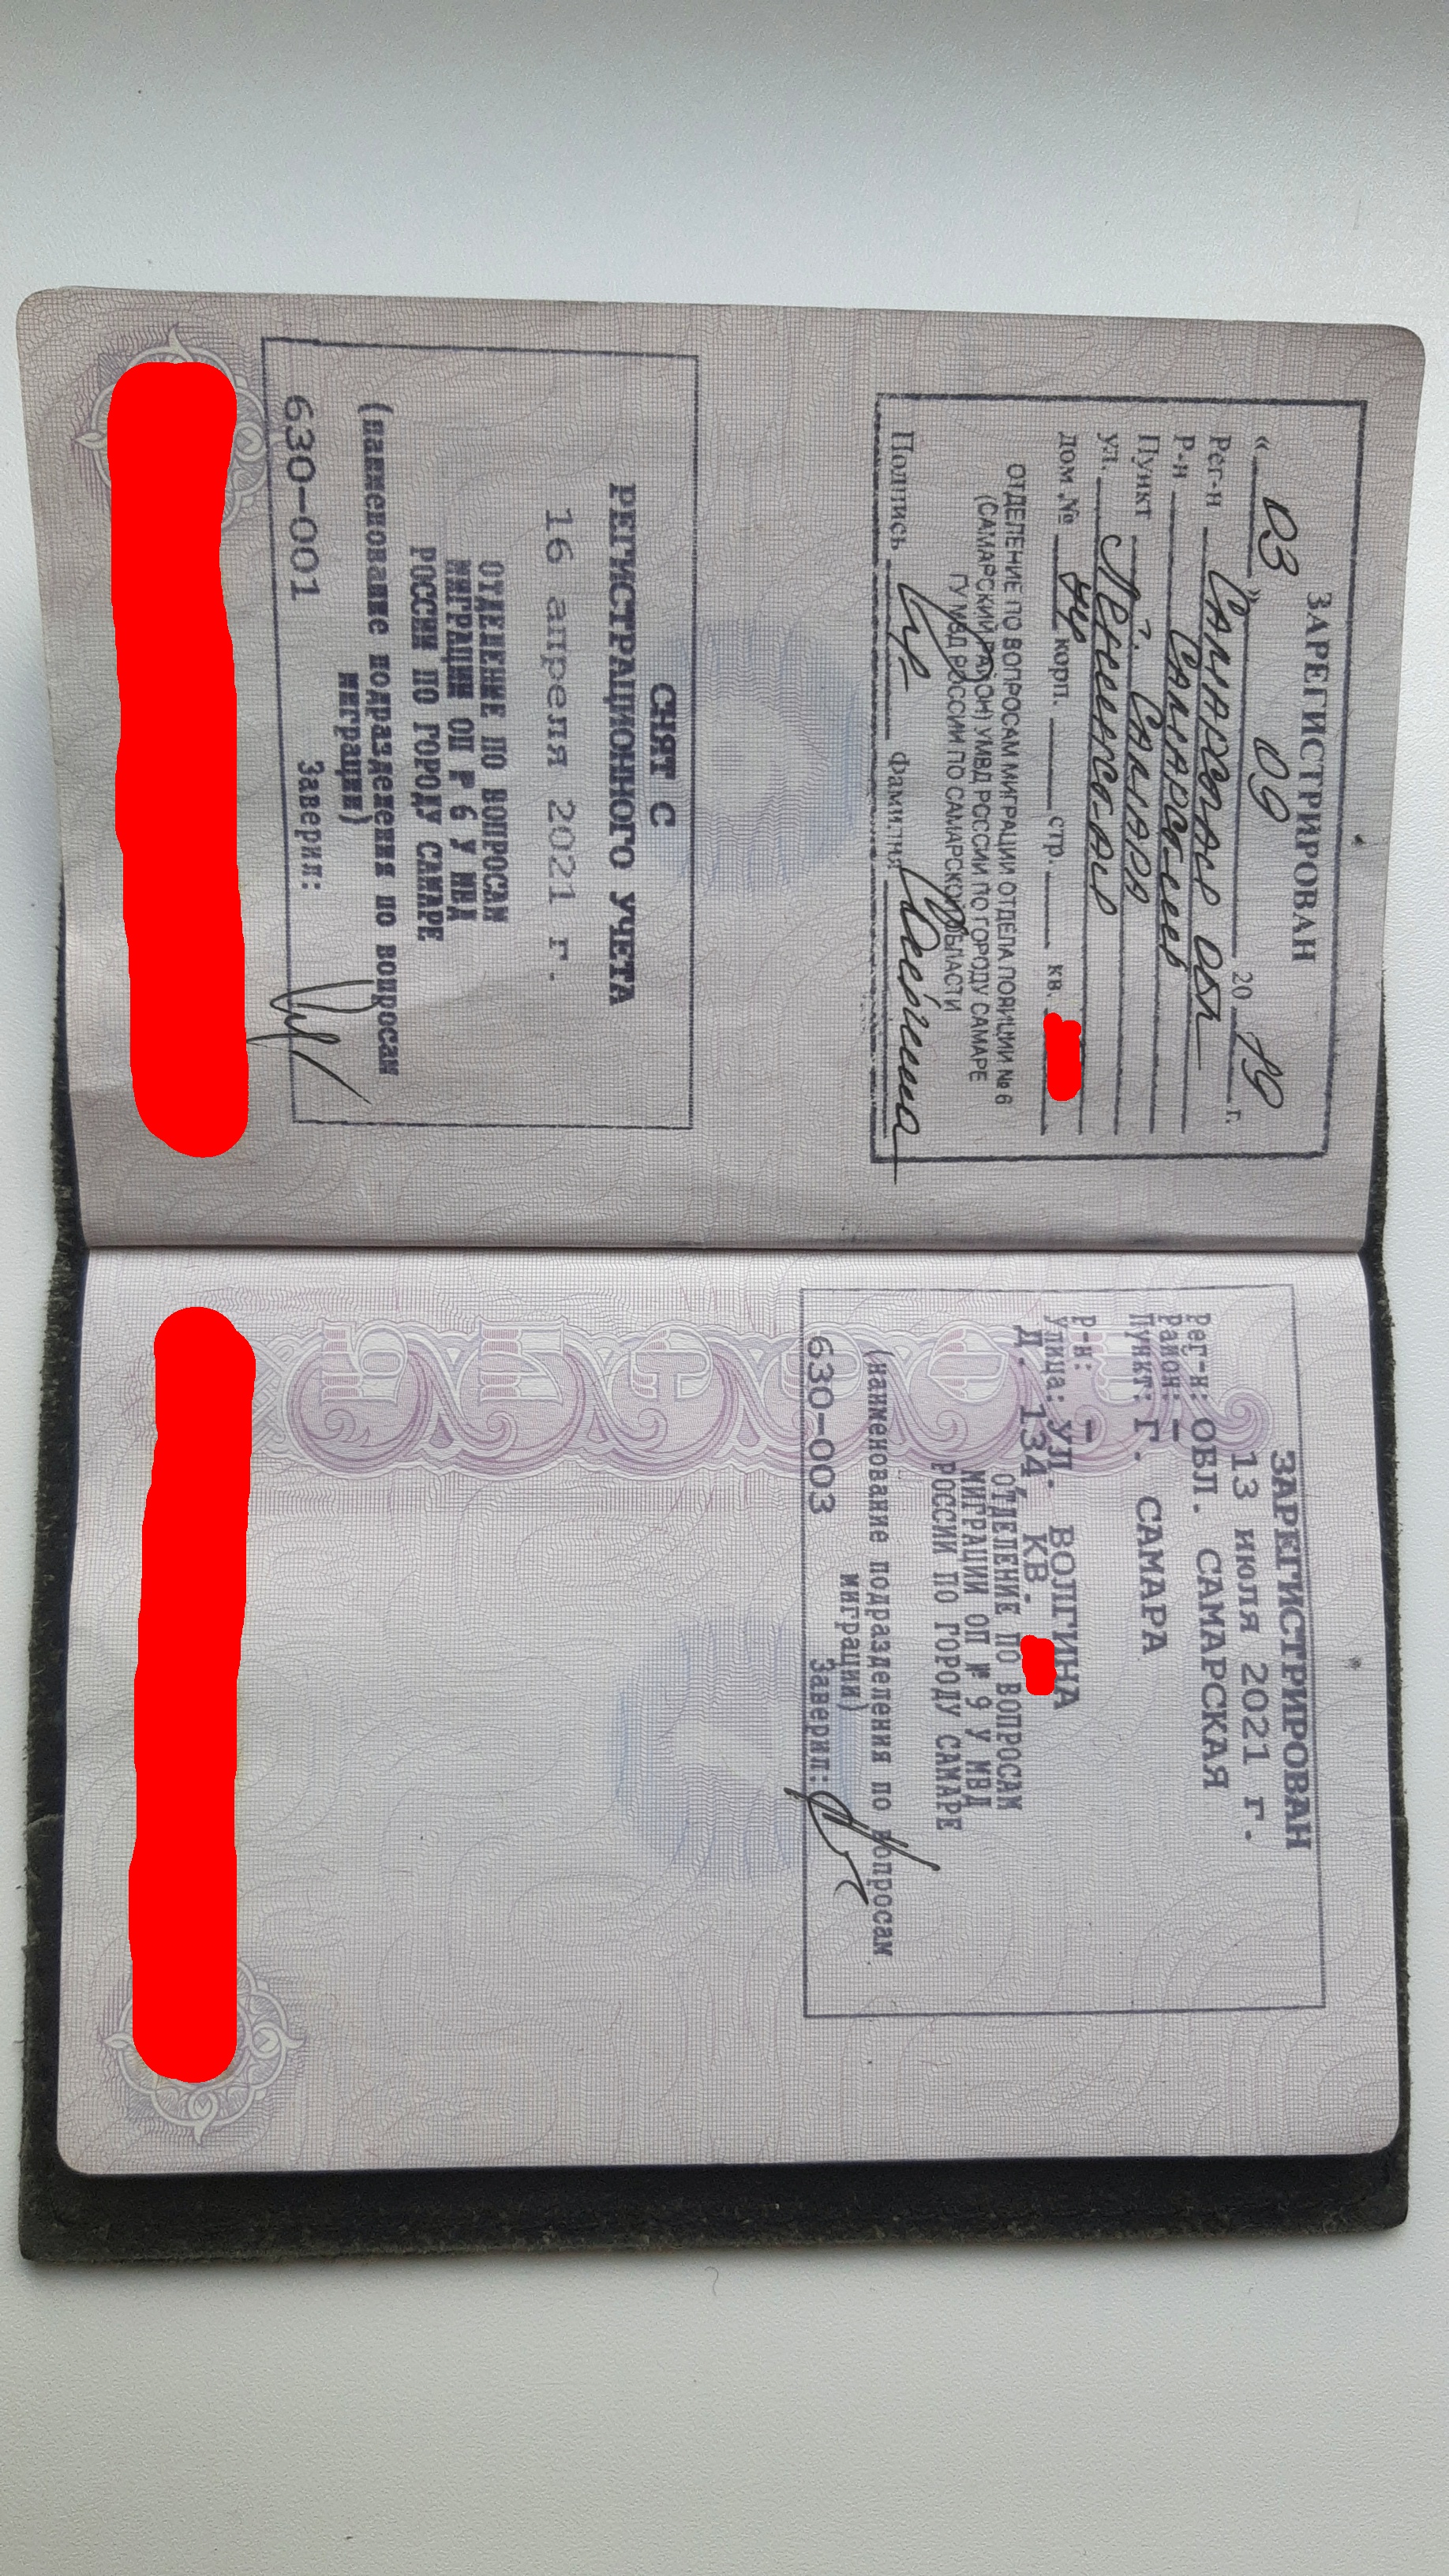 ЗАРЕГИСТРИРОВАН
« 03 » 09 20 19 г.
Рег-н Самарская обл
Р-н Самарский
Пункт г. Самара
ул. Ленинская
дом № корп. стр. кв.
ОТДЕЛЕНИЕ ПО ВОПРОСАМ МИГРАЦИИ ОТДЕЛА ПОЛИЦИИ № 6
(САМАРСКИЙ РАЙОН) УМВД РОССИИ ПО ГОРОДУ САМАРЕ
ГУ МВД РОССИИ ПО САМАРСКОЙ ОБЛАСТИ
Подпись Фамилия
СНЯТ С
РЕГИСТРАЦИОННОГО УЧЕТА
16 апреля 2021 г.
ОТДЕЛЕНИЕ ПО ВОПРОСАМ
МИГРАЦИИ ОП Р 6 У МВД
РОССИИ ПО ГОРОДУ САМАРЕ
(наименование подразделения по вопросам
миграции)
630-001 Заверил:
ЗАРЕГИСТРИРОВАН
13 июля 2021 г.
Рег-н: ОБЛ. САМАРСКАЯ
Район: –
Пункт: Г. САМАРА
Р-н: –
Улица: УЛ. ВОЛГИНА
Д. 134, КВ.
ОТДЕЛЕНИЕ ПО ВОПРОСАМ
МИГРАЦИИ ОП № 9 У МВД
РОССИИ ПО ГОРОДУ САМАРЕ
(наименование подразделения по вопросам
миграции)
630-003 Заверил: